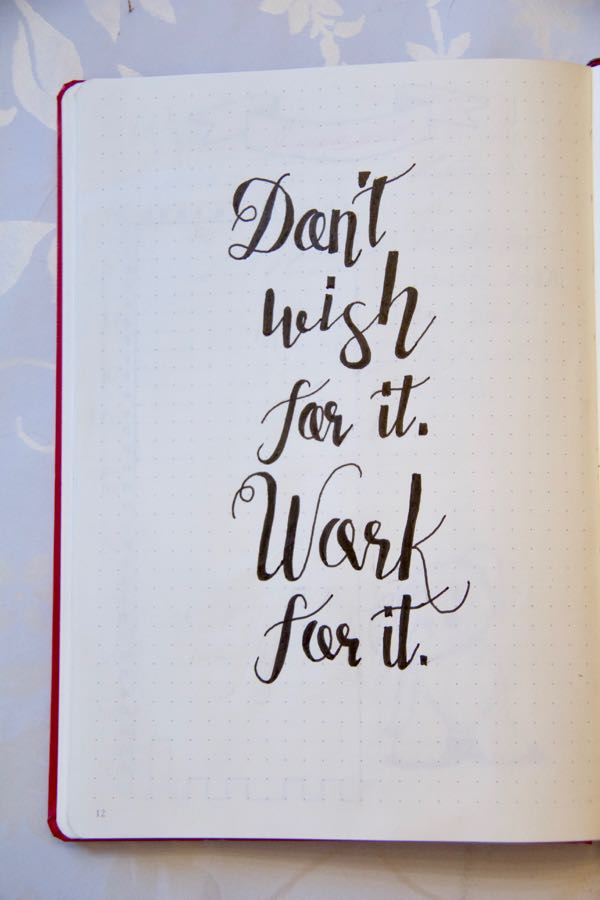 Don't
wish
for it.
Work
for it.
12